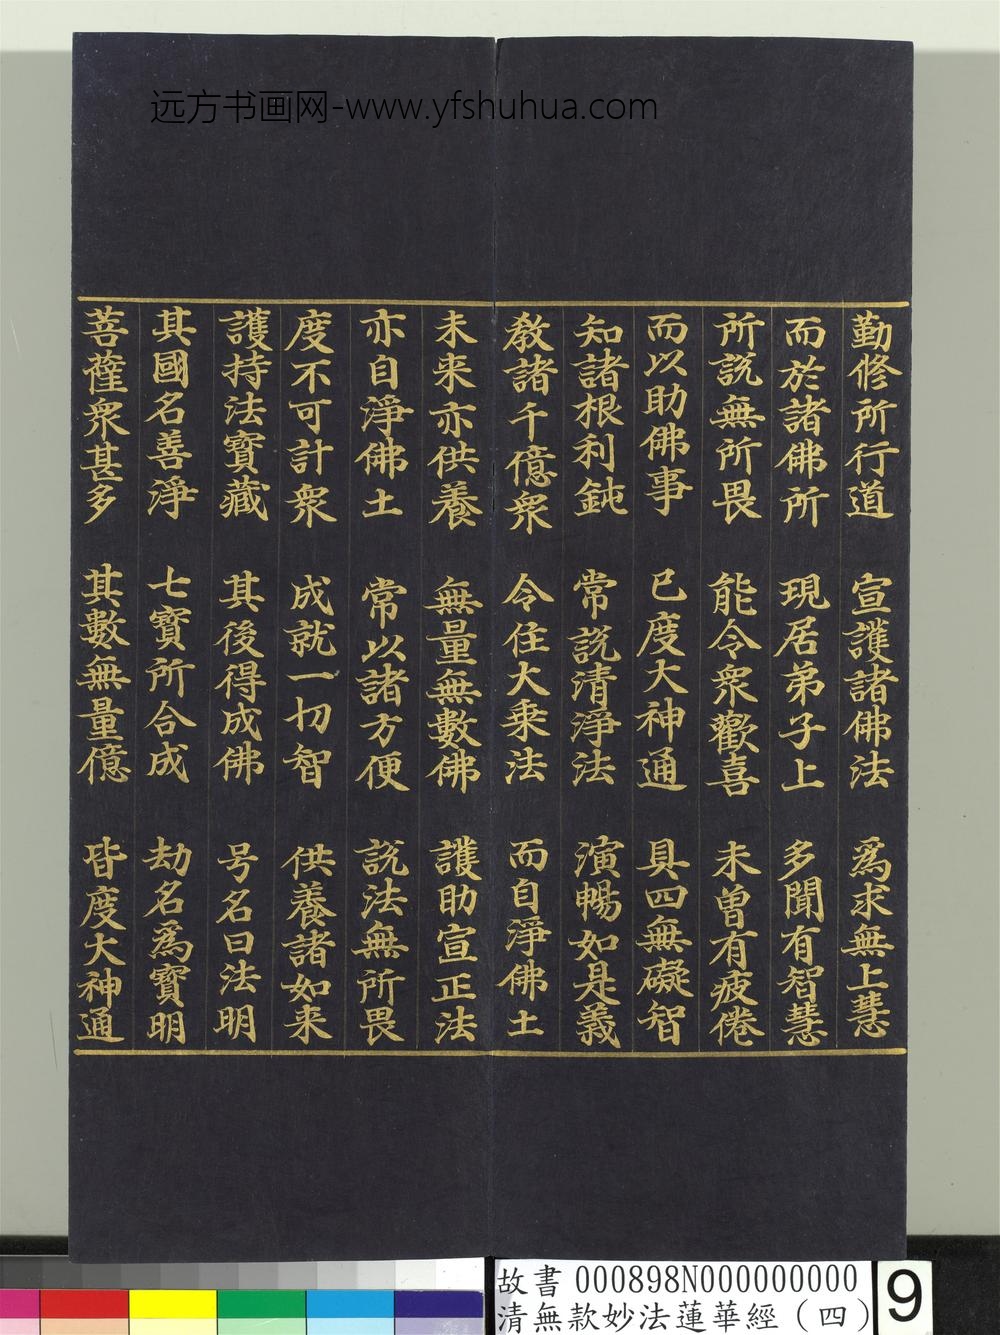 远方书画网-www.yfshuhua.com
勤修所行道 宣護諸佛法 為求無上慧
而於諸佛所 現居弟子上 多聞有智慧
所説無所畏 能令衆歡喜 未曽有疲倦
而以助佛事 已度大神通 具四無礙智
知諸根利鈍 常説清淨法 演暢如是義
教諸千億衆 令住大乗法 而自淨佛土
未来亦供養 無量無數佛 護助宣正法
亦自淨佛土 常以諸方便 説法無所畏
度不可計衆 成就一切智 供養諸如来
護持法寳藏 其後得成佛 号名曰法明
其國名善淨 七寳所合成 劫名為寳明
菩薩衆甚多 其數無量億 皆度大神通
故書 000898N000000000
清無款妙法蓮華經（四）
9